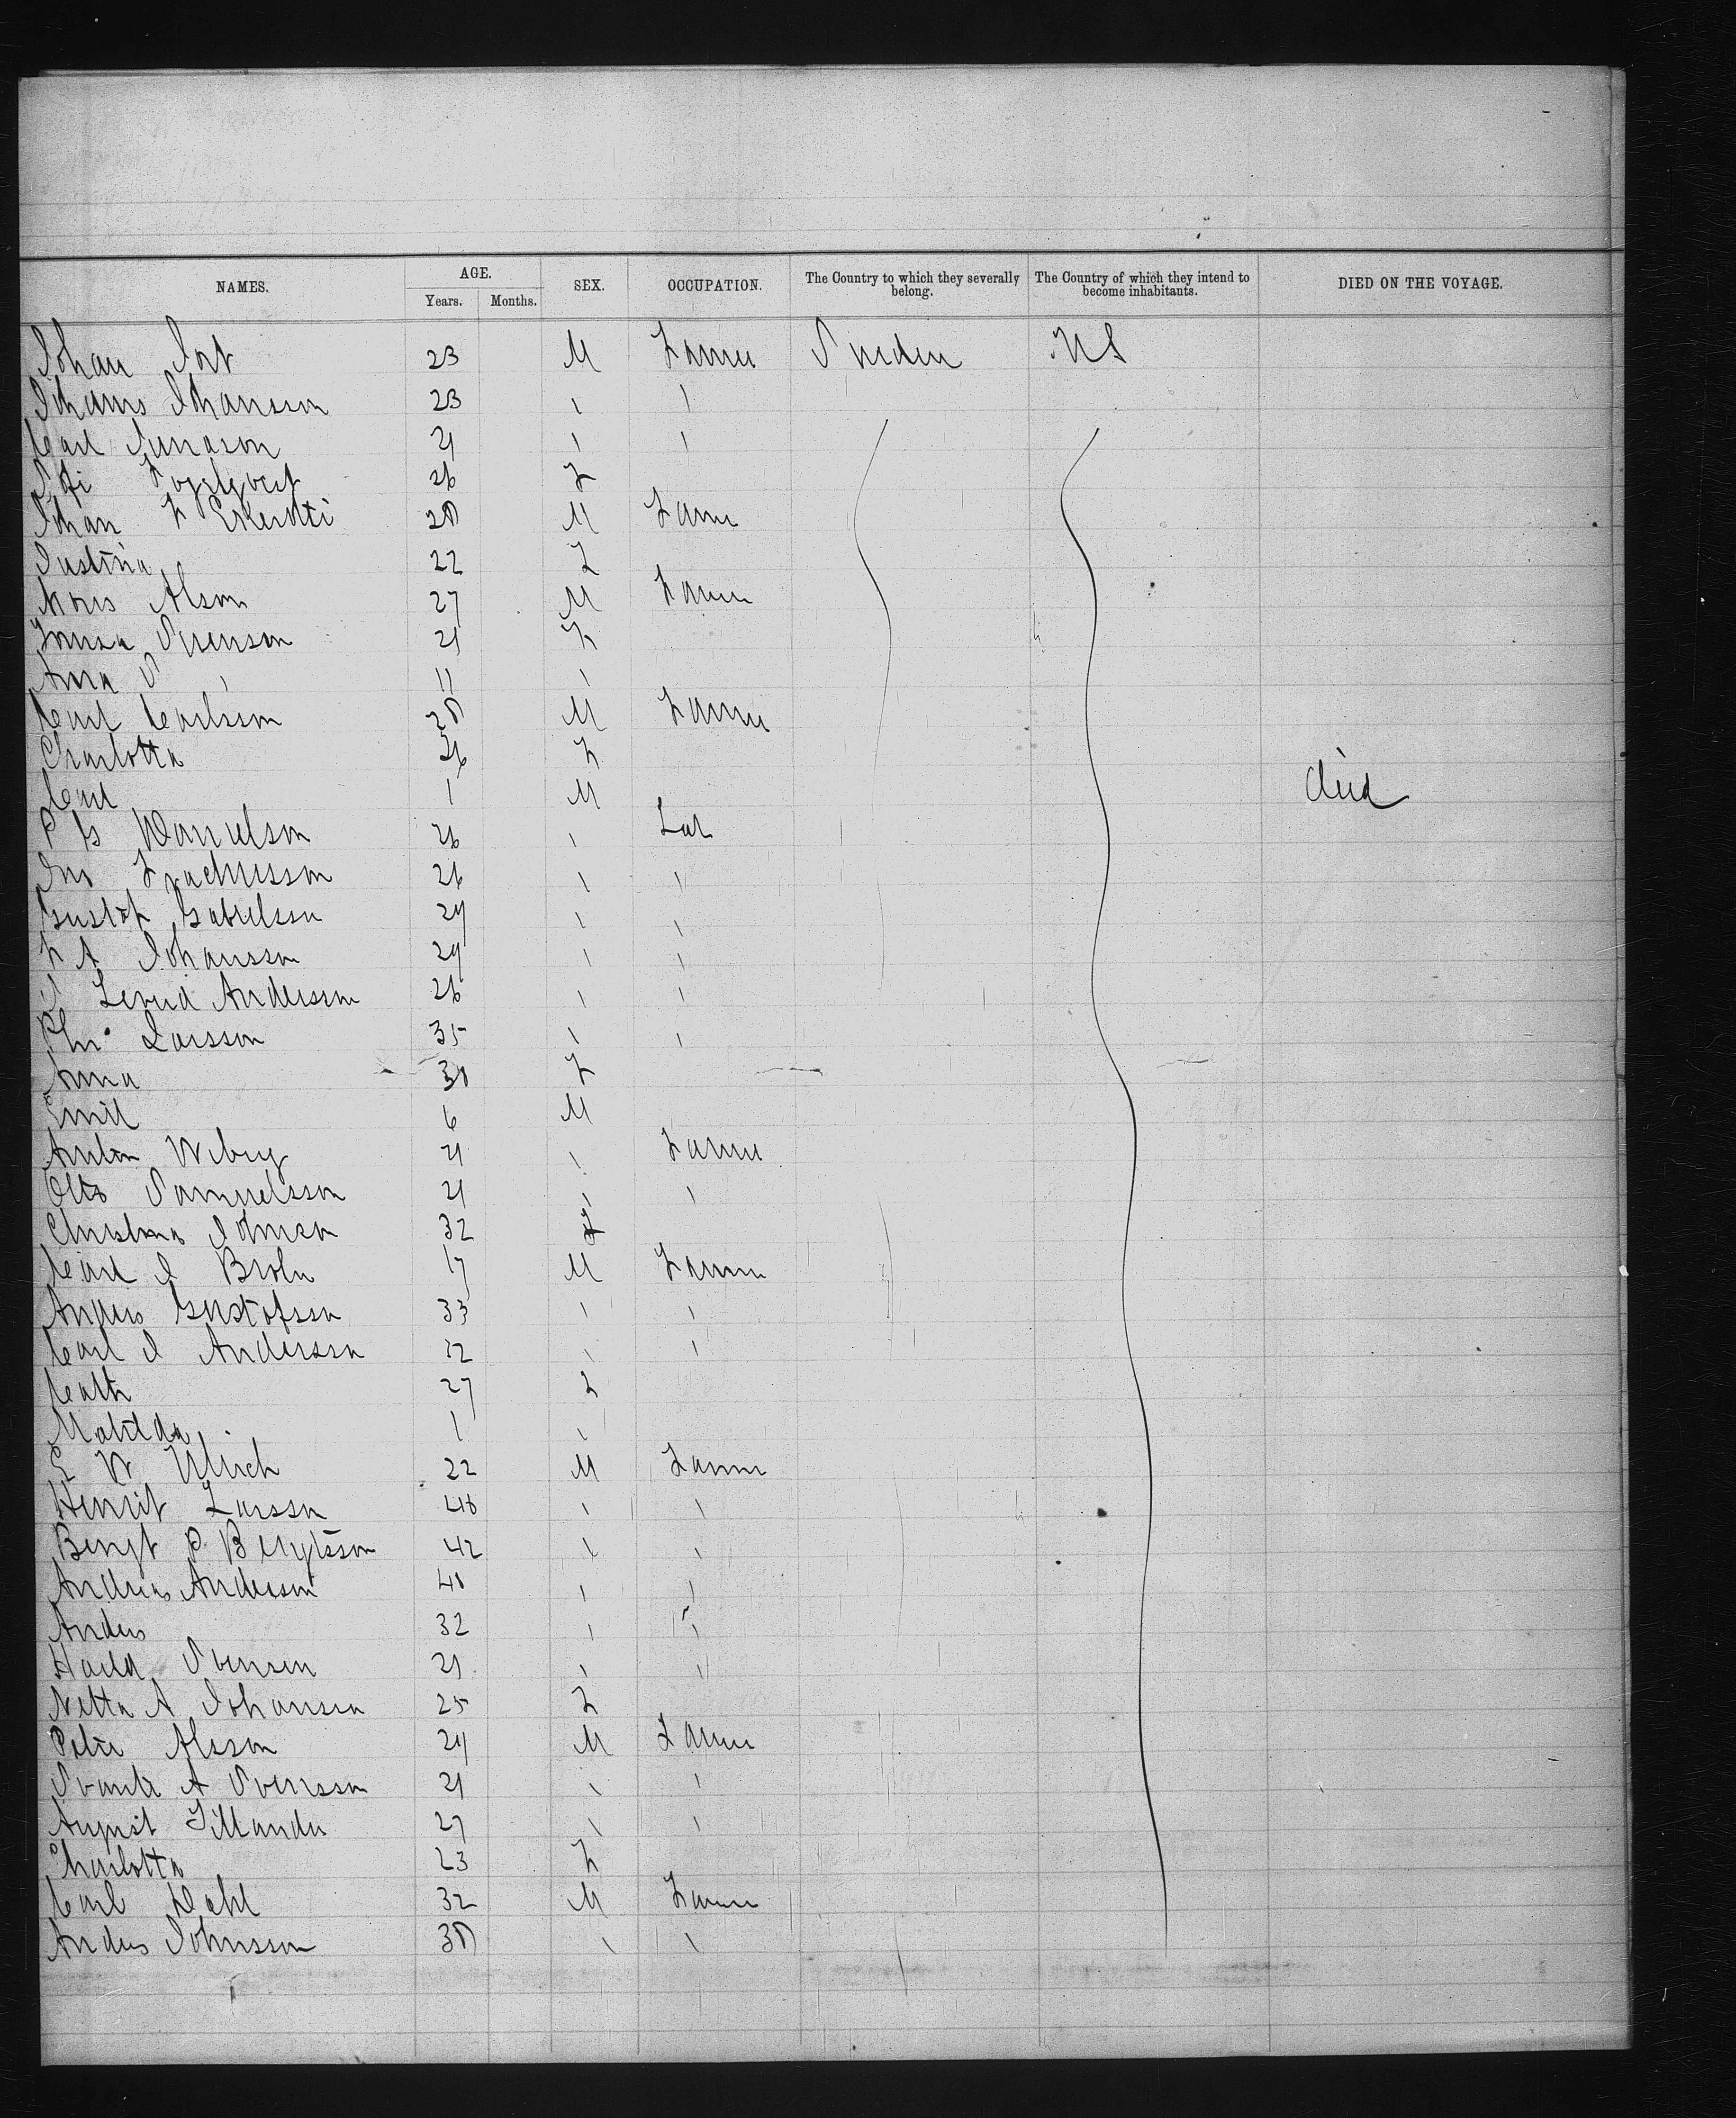 NAMES. AGE. SEX. OCCUPATION. The Country to which they severally belong. The Country of which they intend to become inhabitants. DIED ON THE VOYAGE.
Years. Months.
Johan 23 M Farmer Sweden US
Johansson 23 \ \
Carl 21 \ \
26 F
Johan F 28 M Farm
Justina 22 F
Olsson 27 M Farmer
Svenson 21 F
Anna S \ 11 \
Carl Carlsson 28 M Farmer
Charlotta 26 F
Carl 1 M died
P G Danielson 26 \ Lab
26 \ \
Gustaf Gabrielsson 24 \ \
F A Johansson 24 \ \
Andersson 26 \ \
Chr Larsson 35 \ \
Anna 30 F
Emil 6 M
Anton Wiberg 21 \ Farmer
Otto Samuelsson 21 \ \
Christina Johnson 32 F
Carl J Brolin 17 M Farmer
Anders Gustafsson 33 \ \
Carl J Andersson 32 \ \
Cath 27 F
Matilda 1 \
E W Ullrich 22 M Farmer
Henrik Larsson 48 \ \
Bengt P Bengtsson 42 \ \
Andreas Andersson 40 \ \
Anders 32 \ \
Svensson 21 \ \
Netta A Johansson 25 F
Peter Olsson 24 M Farmer
Svante A Svensson 21 \ \
August Tillander 27 \ \
Charlotta 23 F
Carl Dahl 32 M Farmer
Anders Johnsson 30 \ \